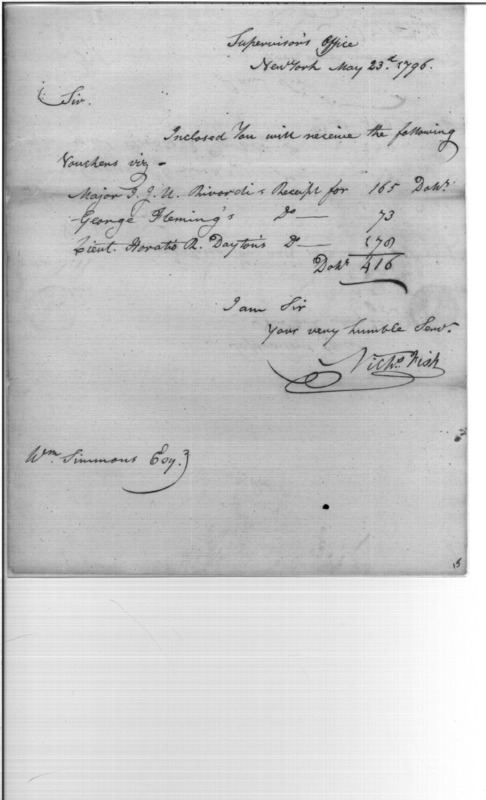 Supervisor's Office
New York May 23d. 1796.
Sir.
Inclosed You will receive the following
Vouchers viz -
Major J. J. U. Rivardi's Receipt for 165 Dolrs.
George Fleming's Do — 73
Lieut. Horatio R. Dayton's Do — 178
Dolrs 416
I am Sir
Your very humble Servt.
Nichs. Fish
Wm. Simmons Esq.